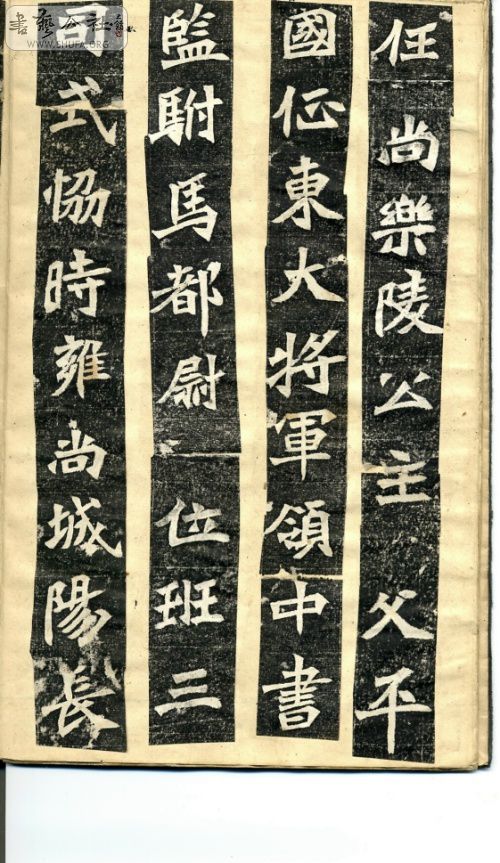 任 尚樂陵公主 父平
國征東大將軍領中書
監駙馬都尉 位班三
司式協時雍尚城陽長
書藝公社
WWW.SHUFA.ORG